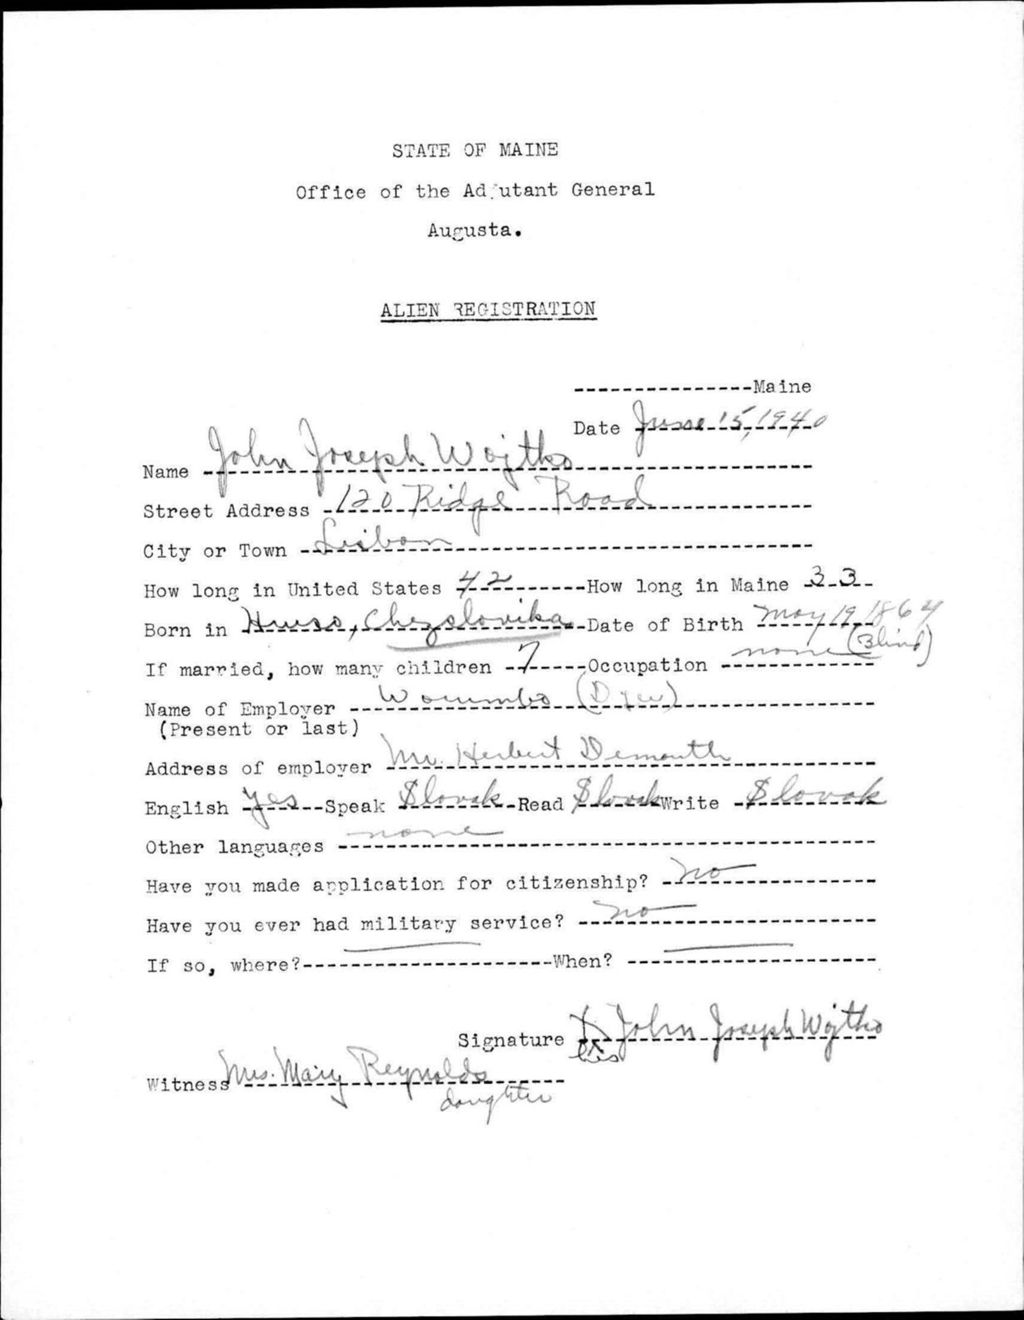 STATE OF MAINE
Office of the Adjutant General
Augusta.
ALIEN REGISTRATION
Maine
Date June 15, 1940
Name John Joseph Wojtko
Street Address 120 Ridge Road
City or Town Lisbon
How long in United States 42 How long in Maine 33
Born in Chezslovika Date of Birth May 19, 1864
If married, how many children 7 Occupation none (Blind)
Name of Employer Worumbo (Dyer)
(Present or last)
Address of employer Mr. Herbert Demouth
English Yes Speak Slovak Read Slovak Write Slovak
Other languages none
Have you made application for citizenship? No
Have you ever had military service? no
If so, where? When?
Signature X John Joseph Wojtko
his
Witness Mrs. Mary Reynolds
daughter